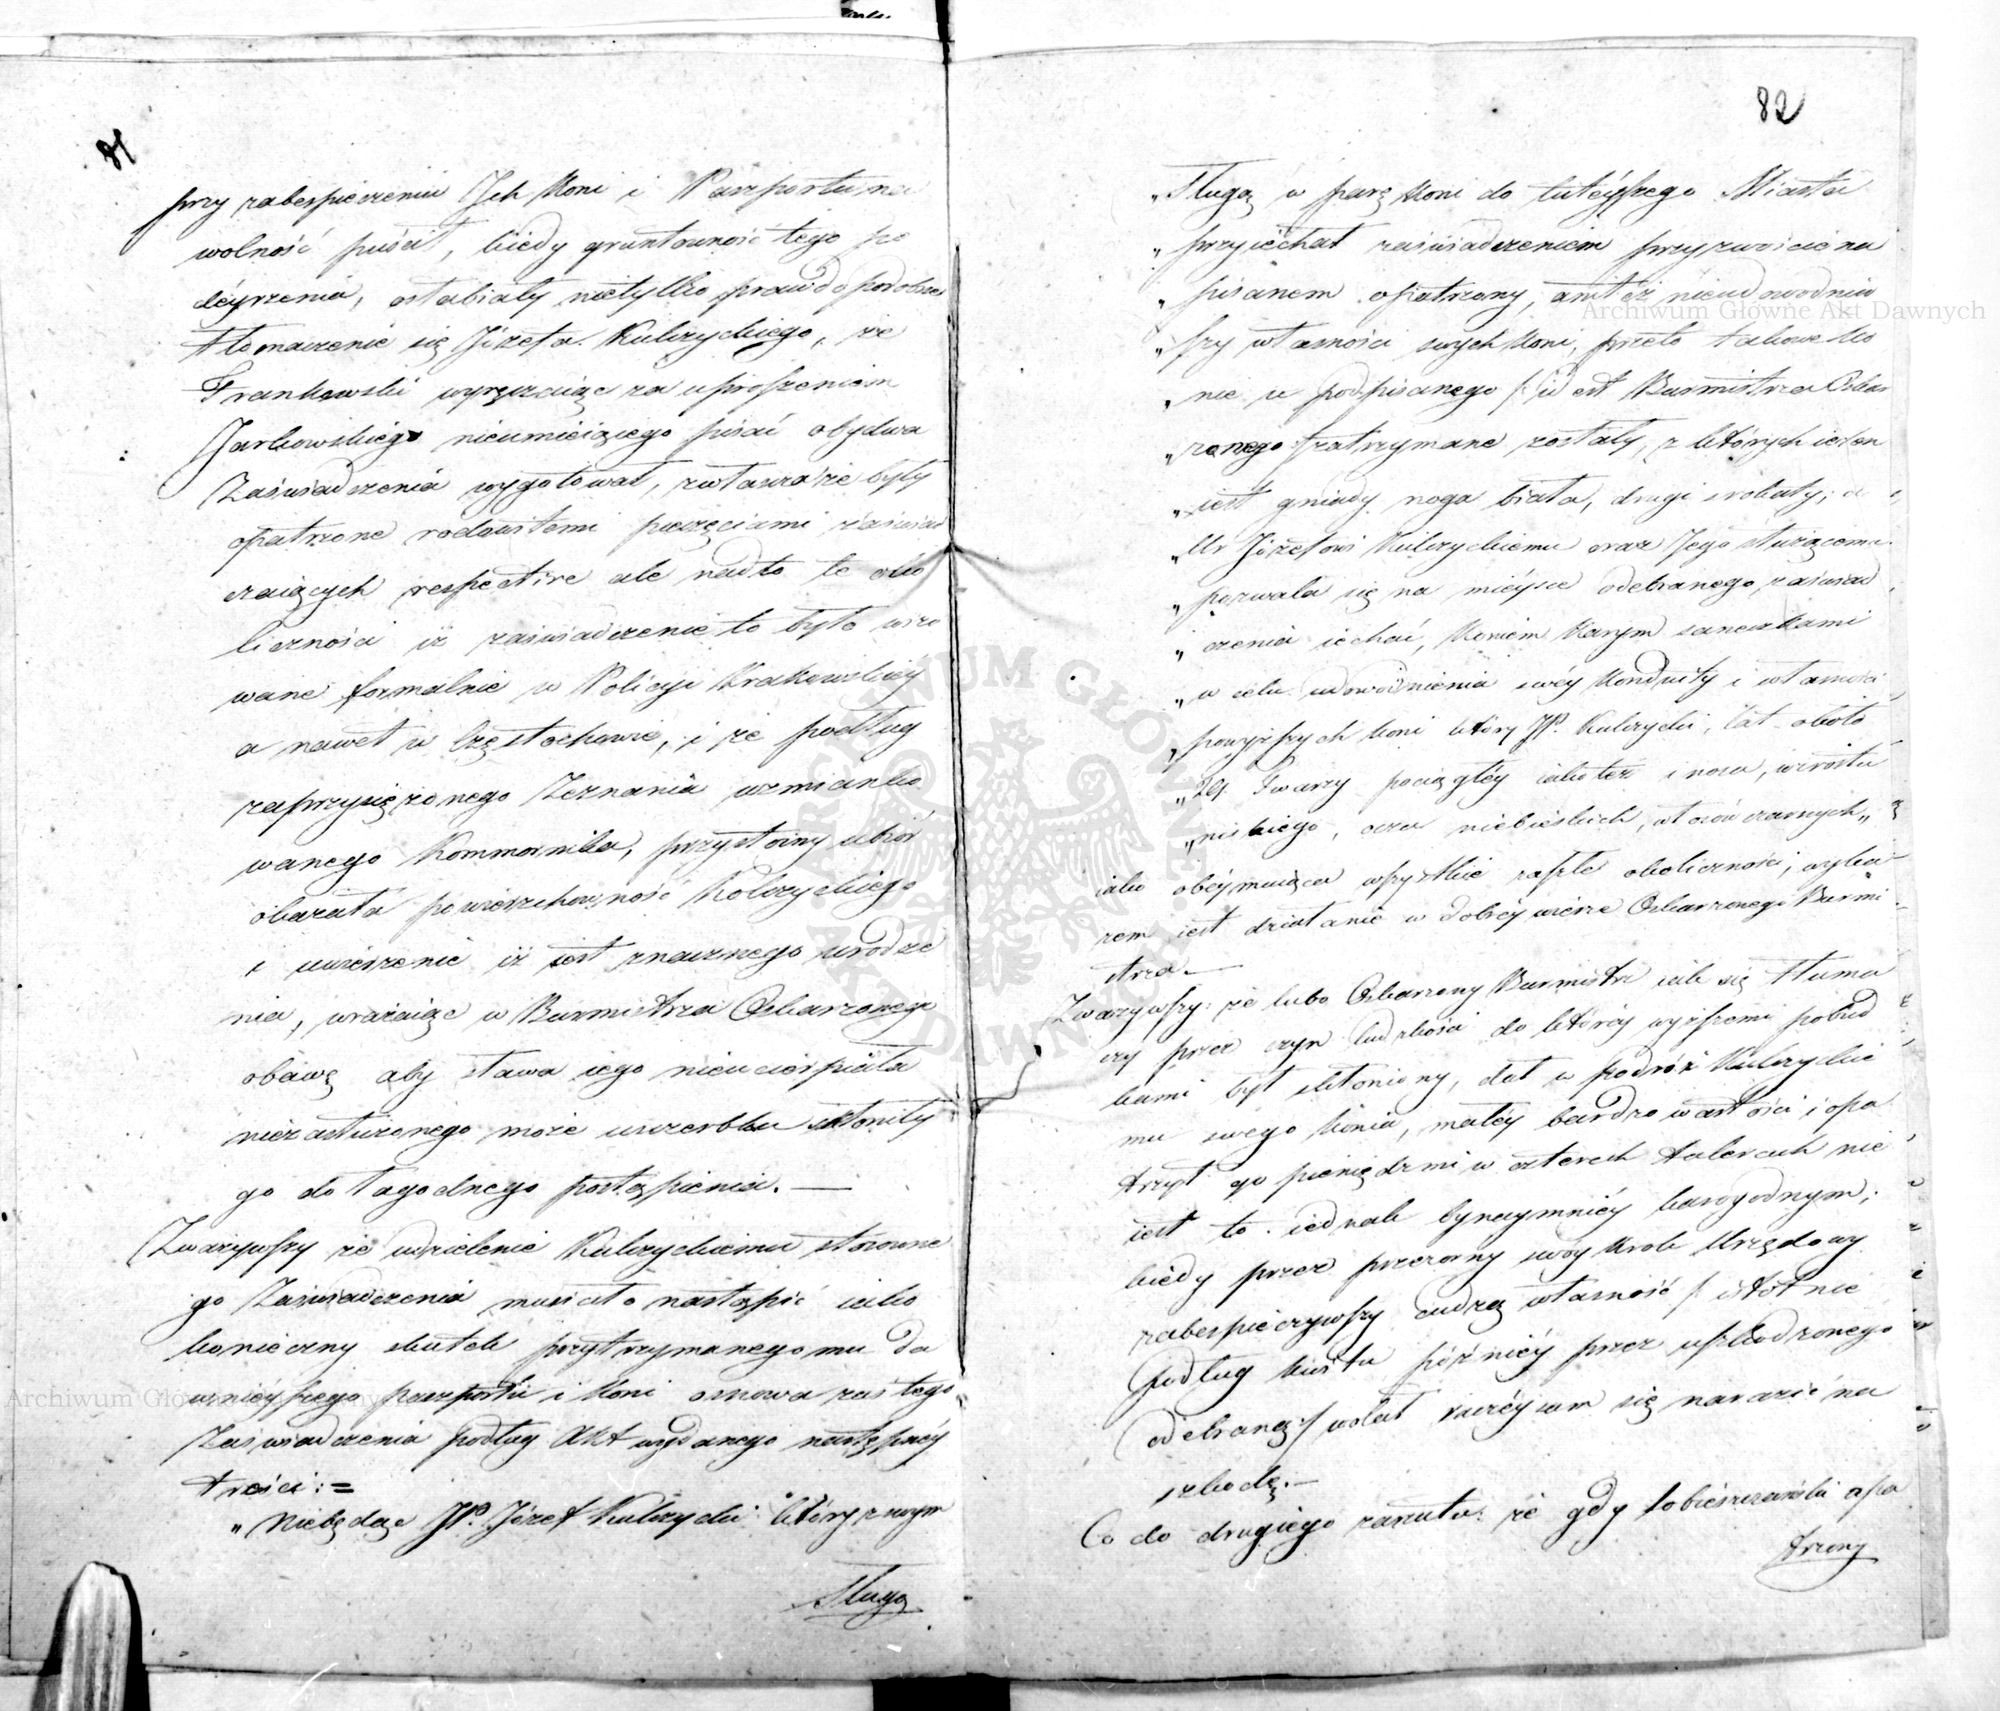 81
przy zabespieczeniu Jch koni i Paszportu na
wolność puścił, kiedy gruntowność tego po
déyrzenia, osłabiały nietylko prawdopodobne
tłomaczenie się Józefa Kulczyckiego, że
Frankowski wyręczaiąc za uproszeniem
Jarkowskiego nieumieiącego pisać obydwa
Zaświadczenia wygotował, zwłaszcza że były
opatrzone rodowitemi pieczęciami zaświad
czaiących respective ale nadto te oko
liczności iż zaświadczenie to było wizo
wane formalnie w Policyi Krakowskiéy
a nawet w Częstochowie, i że podług
zaprzysiężonego Zeznania wzmianko
wanego Kommornika, przystoiny ubiór
okazała powierzchowność Kolczyckiego
i uwierzenie iż iest znacznego urodze
nia, wrażaiąc w Burmistrza Oskarzonego
obawę aby sława iego nieucierpiała
niezasłużonego może uszczerbku skłoniły
go do łagodnego postąpienia. —
Zważywszy że udzielenie Kulczyckiemu stosowne
go Zaświadczenia musiało nastąpić iako
konieczny skutek przytrzymanego mu da
wniéyszego paszportu i koni osnowa zaś tego
Zaświadczenia podług Akt wydanego następnéy
treści: =
„ Niebędąc JP. Józef Kulczycki który z swym
Sługą
82
„ Sługą w parę koni do tutéyszego Miasta
„ przyiéchał zaświadczeniem przyzwoicie na
„ pisanem opatrzony, aniteż nieudowodniw
„ szy własności swych koni, przeto takowe ko
„ nie u podpisanego /: id est Burmistrza Oskar
„ zonego :/ zatrzymane zostały, z których ieden
„ iest gniady noga biała, drugi srokaty; a
„ Ur Józefowi Kulczyckiemu oraz Jego służącemu
„ pozwala się na mieysce odebranego zaświad
„ czenia iechać, koniem karym saneczkami
„ w celu udowodnienia swéy konduity i własności
„ powyższych koni który JP. Kulczycki, lat około
„ 24 Twarzy pociągłéy iakoteż i nosa, wzrostu
„ niskiego, oczu niebieskich, włosów czarnych „
iako obéymuiąca wszystkie zaszłe okoliczności, wyka
zem iest działanie w dobréy wierze Oskarzonego Burmi
strza. —
Zważywszy: że lubo Oskarzony Burmistrz iak się tłuma
czy przez czyn ludzkości do któréy wyższemi pobud
kami był skłoniony, dał w podróż Kulczyckie
mu swego konia, małéy bardzo wartości i opa
trzył go pieniędzmi w czterech talerach nie
iest to iednak bynaymniéy karogodnym,
kiedy przez przezorny swóy krok Urzędowy
zabespieczywszy cudzą własność /: istotnie
podług kwitu późniéy przez uszkodzonego
odebraną :/ wolał raczéy sam się narazić na
szkodę. —
Co do drugiego zarzutu: że gdy Sobieszczański opa
trzony